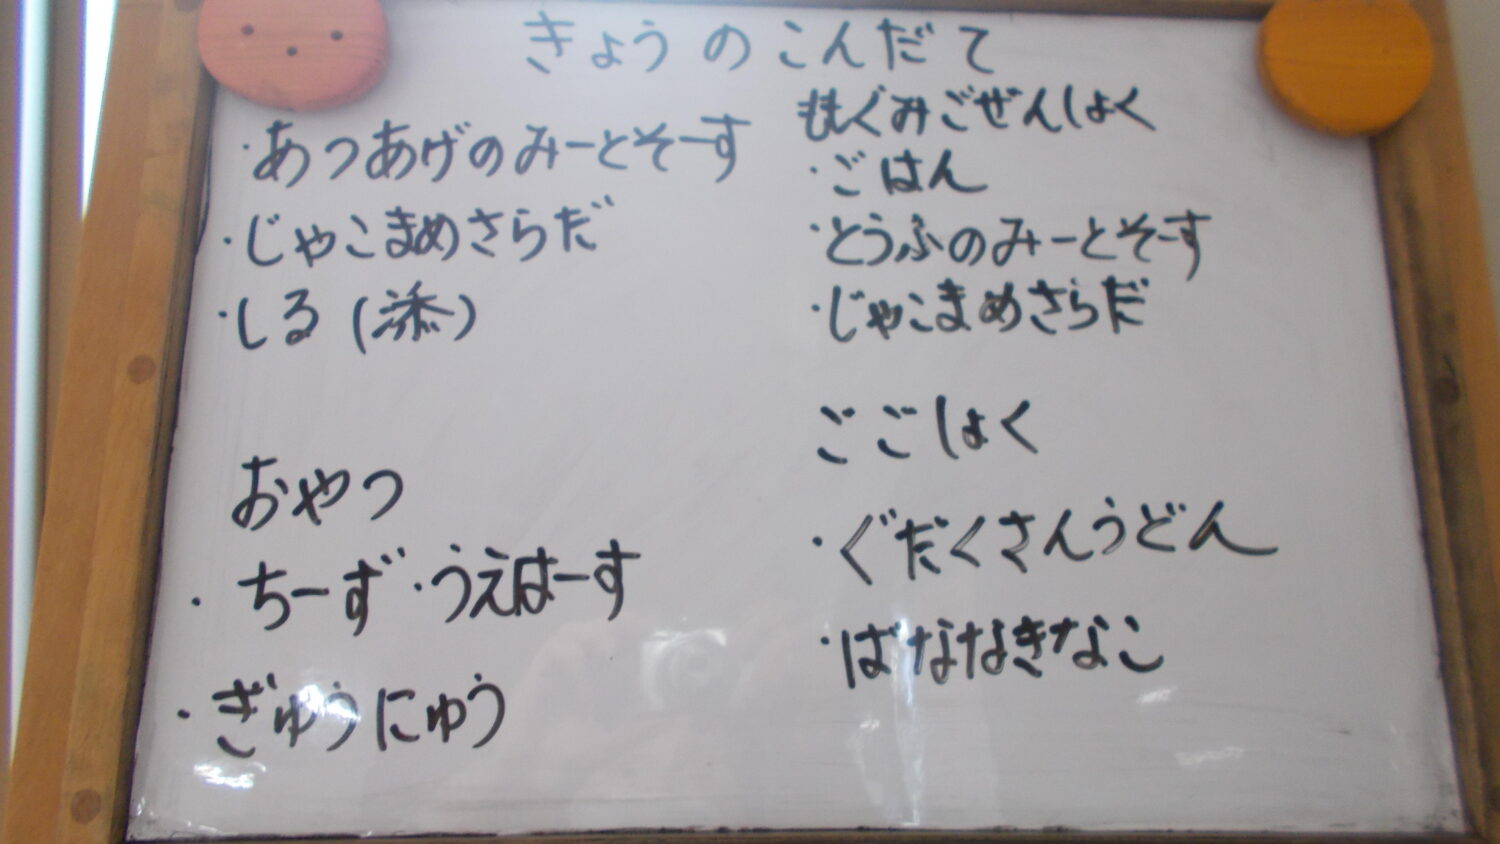 きょうのこんだて
・あつあげのみーとそーす
・じゃこまめさらだ
・しる(添)
おやつ
・ちーず・うえはーす
・ぎゅうにゅう
ももぐみごぜんしょく
・ごはん
・とうふのみーとそーす
・じゃこまめさらだ
ごごしょく
・ぐだくさんうどん
・ばななきなこ